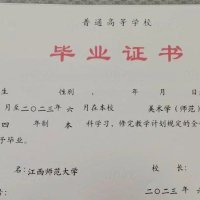 普通高等学校
毕业证书
生 性别， 年 月 日
月至二〇二三年 六 月在本校 美术学（师范）
四 年制 本 科学习，修完教学计划规定的全
予毕业。
名：江西师范大学 校 长：
号： 二〇二三年 六